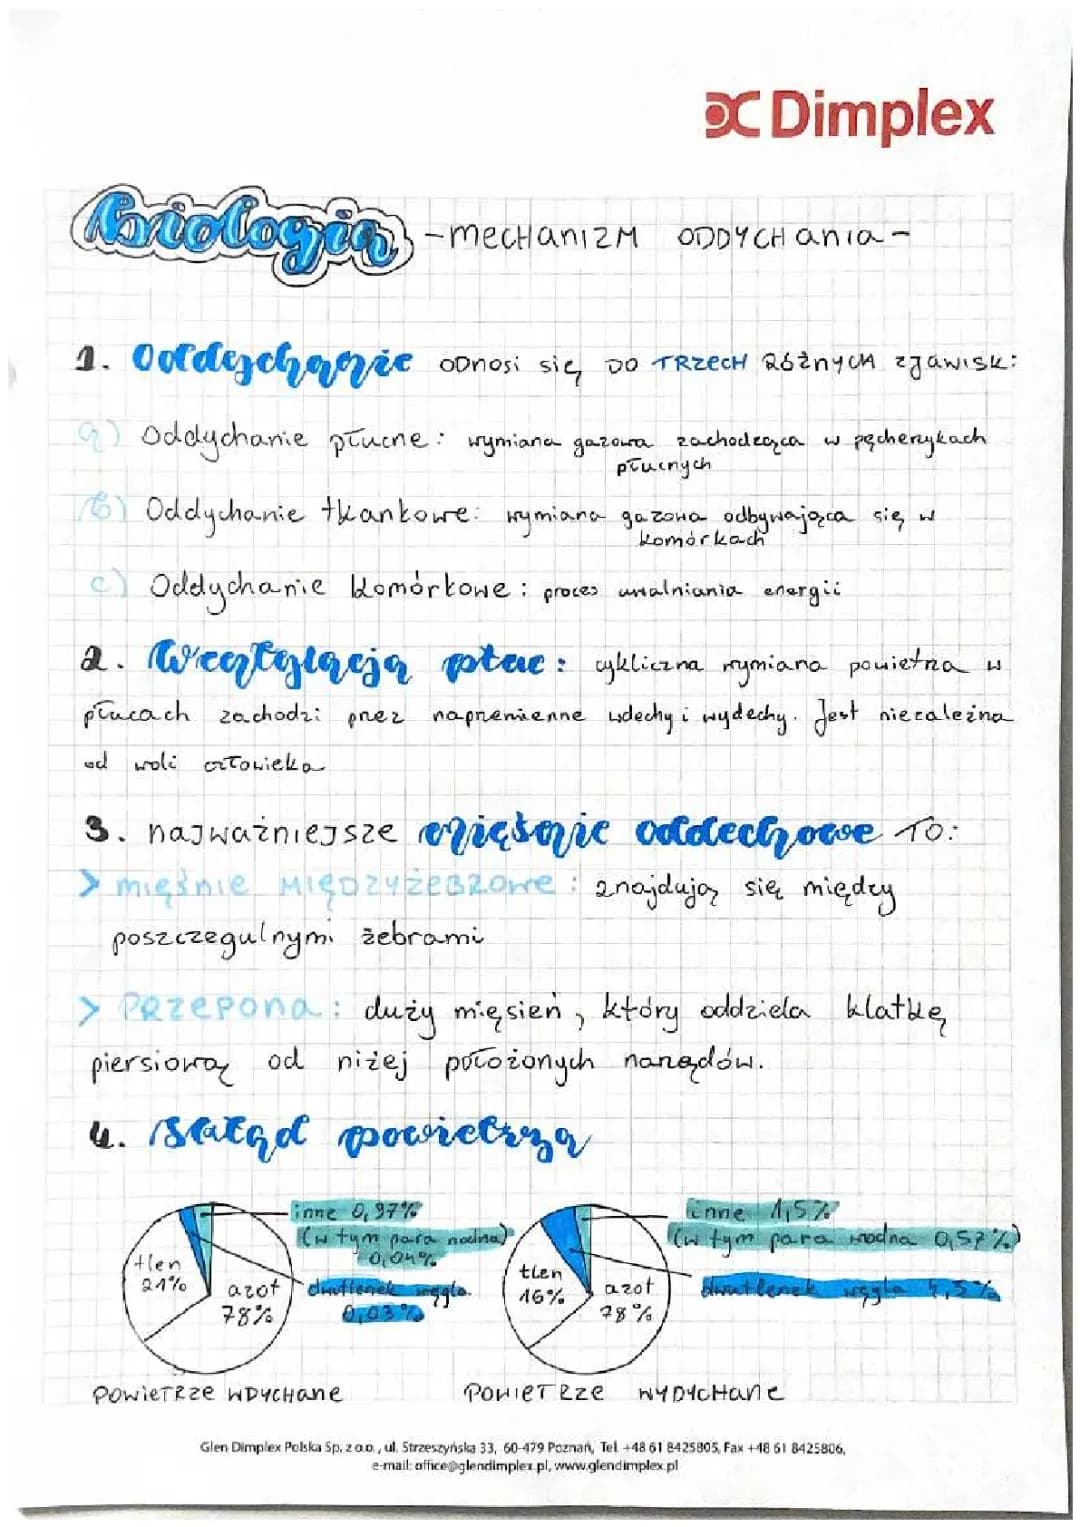 Dimplex
Biologia -mechanizm oddychania-
1. Oddychanie odnosi się do trzech różnych zjawisk:
a) Oddychanie płucne: wymiana gazowa zachodząca w pęcherzykach
płucnych
b) Oddychanie tkankowe: wymiana gazowa odbywająca się w
komórkach
c) Oddychanie komórkowe: proces uwalniania energii
2. Wentylacja płuc: cykliczna wymiana powietrza w
płucach zachodzi przez naprzemienne wdechy i wydechy. Jest niezależna
od woli człowieka
3. najważniejsze mięśnie oddechowe to:
> mięśnie międzyżebrowe: znajdują się między
poszczegulnymi żebrami
> Przepona: duży mięsień, który oddziela klatkę
piersiową od niżej położonych narządów.
4. Skład powietrza
inne 0,97%
(w tym para wodna)
0,04%
tlen
21%
azot
78%
dwutlenek węgla
0,03%
inne 1,5%
(w tym para wodna 0,57%)
tlen
16%
azot
78%
dwutlenek węgla 4,5%
Powietrze wdychane
Powietrze wydychane
Glen Dimplex Polska Sp. z o.o., ul. Strzeszyńska 33, 60-479 Poznań, Tel. +48 61 8425805, Fax +48 61 8425806,
e-mail: office@glendimplex.pl, www.glendimplex.pl